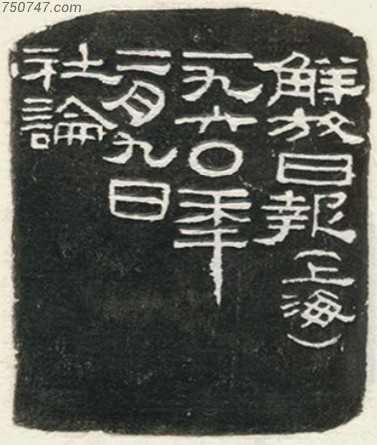 750747.com
解放日報(上海)
一九六〇年
二月九日
社論